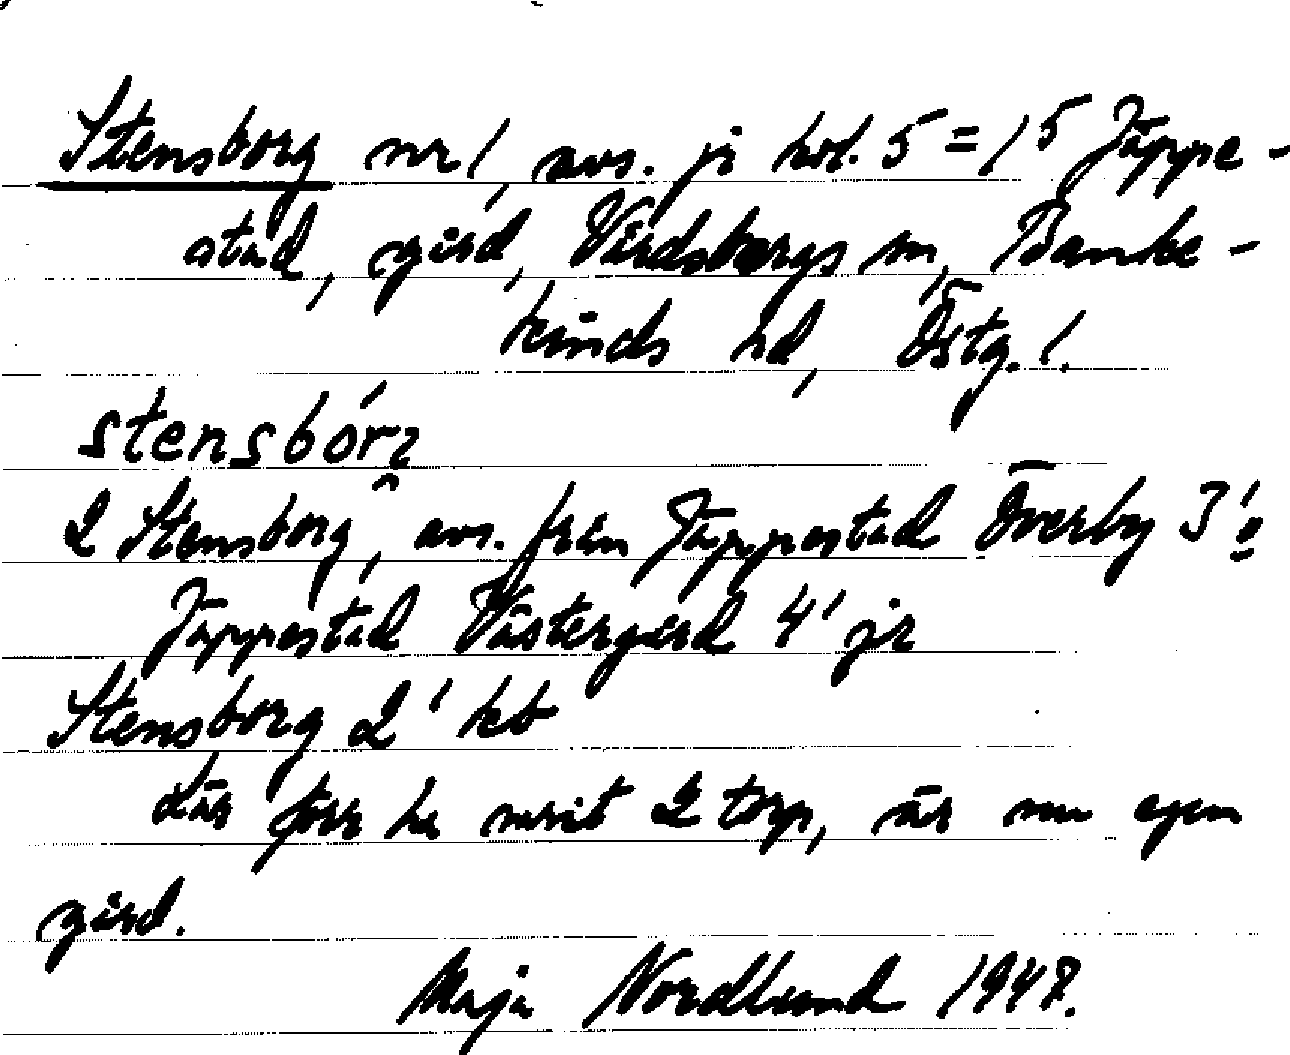 Stensborg nr 1, avs. jr kol. 5 = 1⁵ Jäppe-
stad, gård, Vårdsbergs sn, Banke-
kinds hd, Östg. l.
stensbórg
2 Stensborg, avs. från Jäppestad Överby 3¹ o
Jäppestad Västergård 4¹ jr
Stensborg 2¹ kb
där förr ha varit 2 torp, är nu egen
gård.
Maja Nordlund 1947.